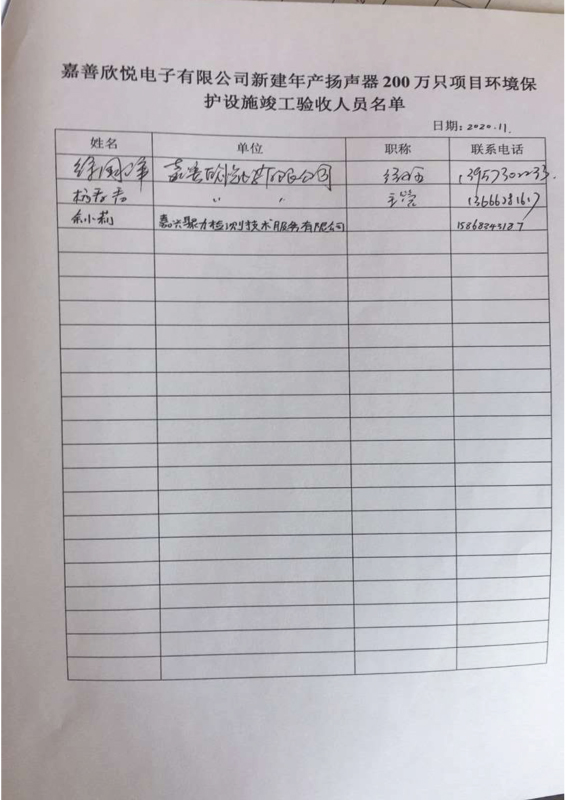 嘉善欣悦电子有限公司新建年产扬声器200万只项目环境保
护设施竣工验收人员名单
日期：2020.11.
姓名 单位 职称 联系电话
嘉善欣悦电子有限公司 经理
〃 〃 主管
余小莉 嘉兴聚力检测技术服务有限公司 15868343187